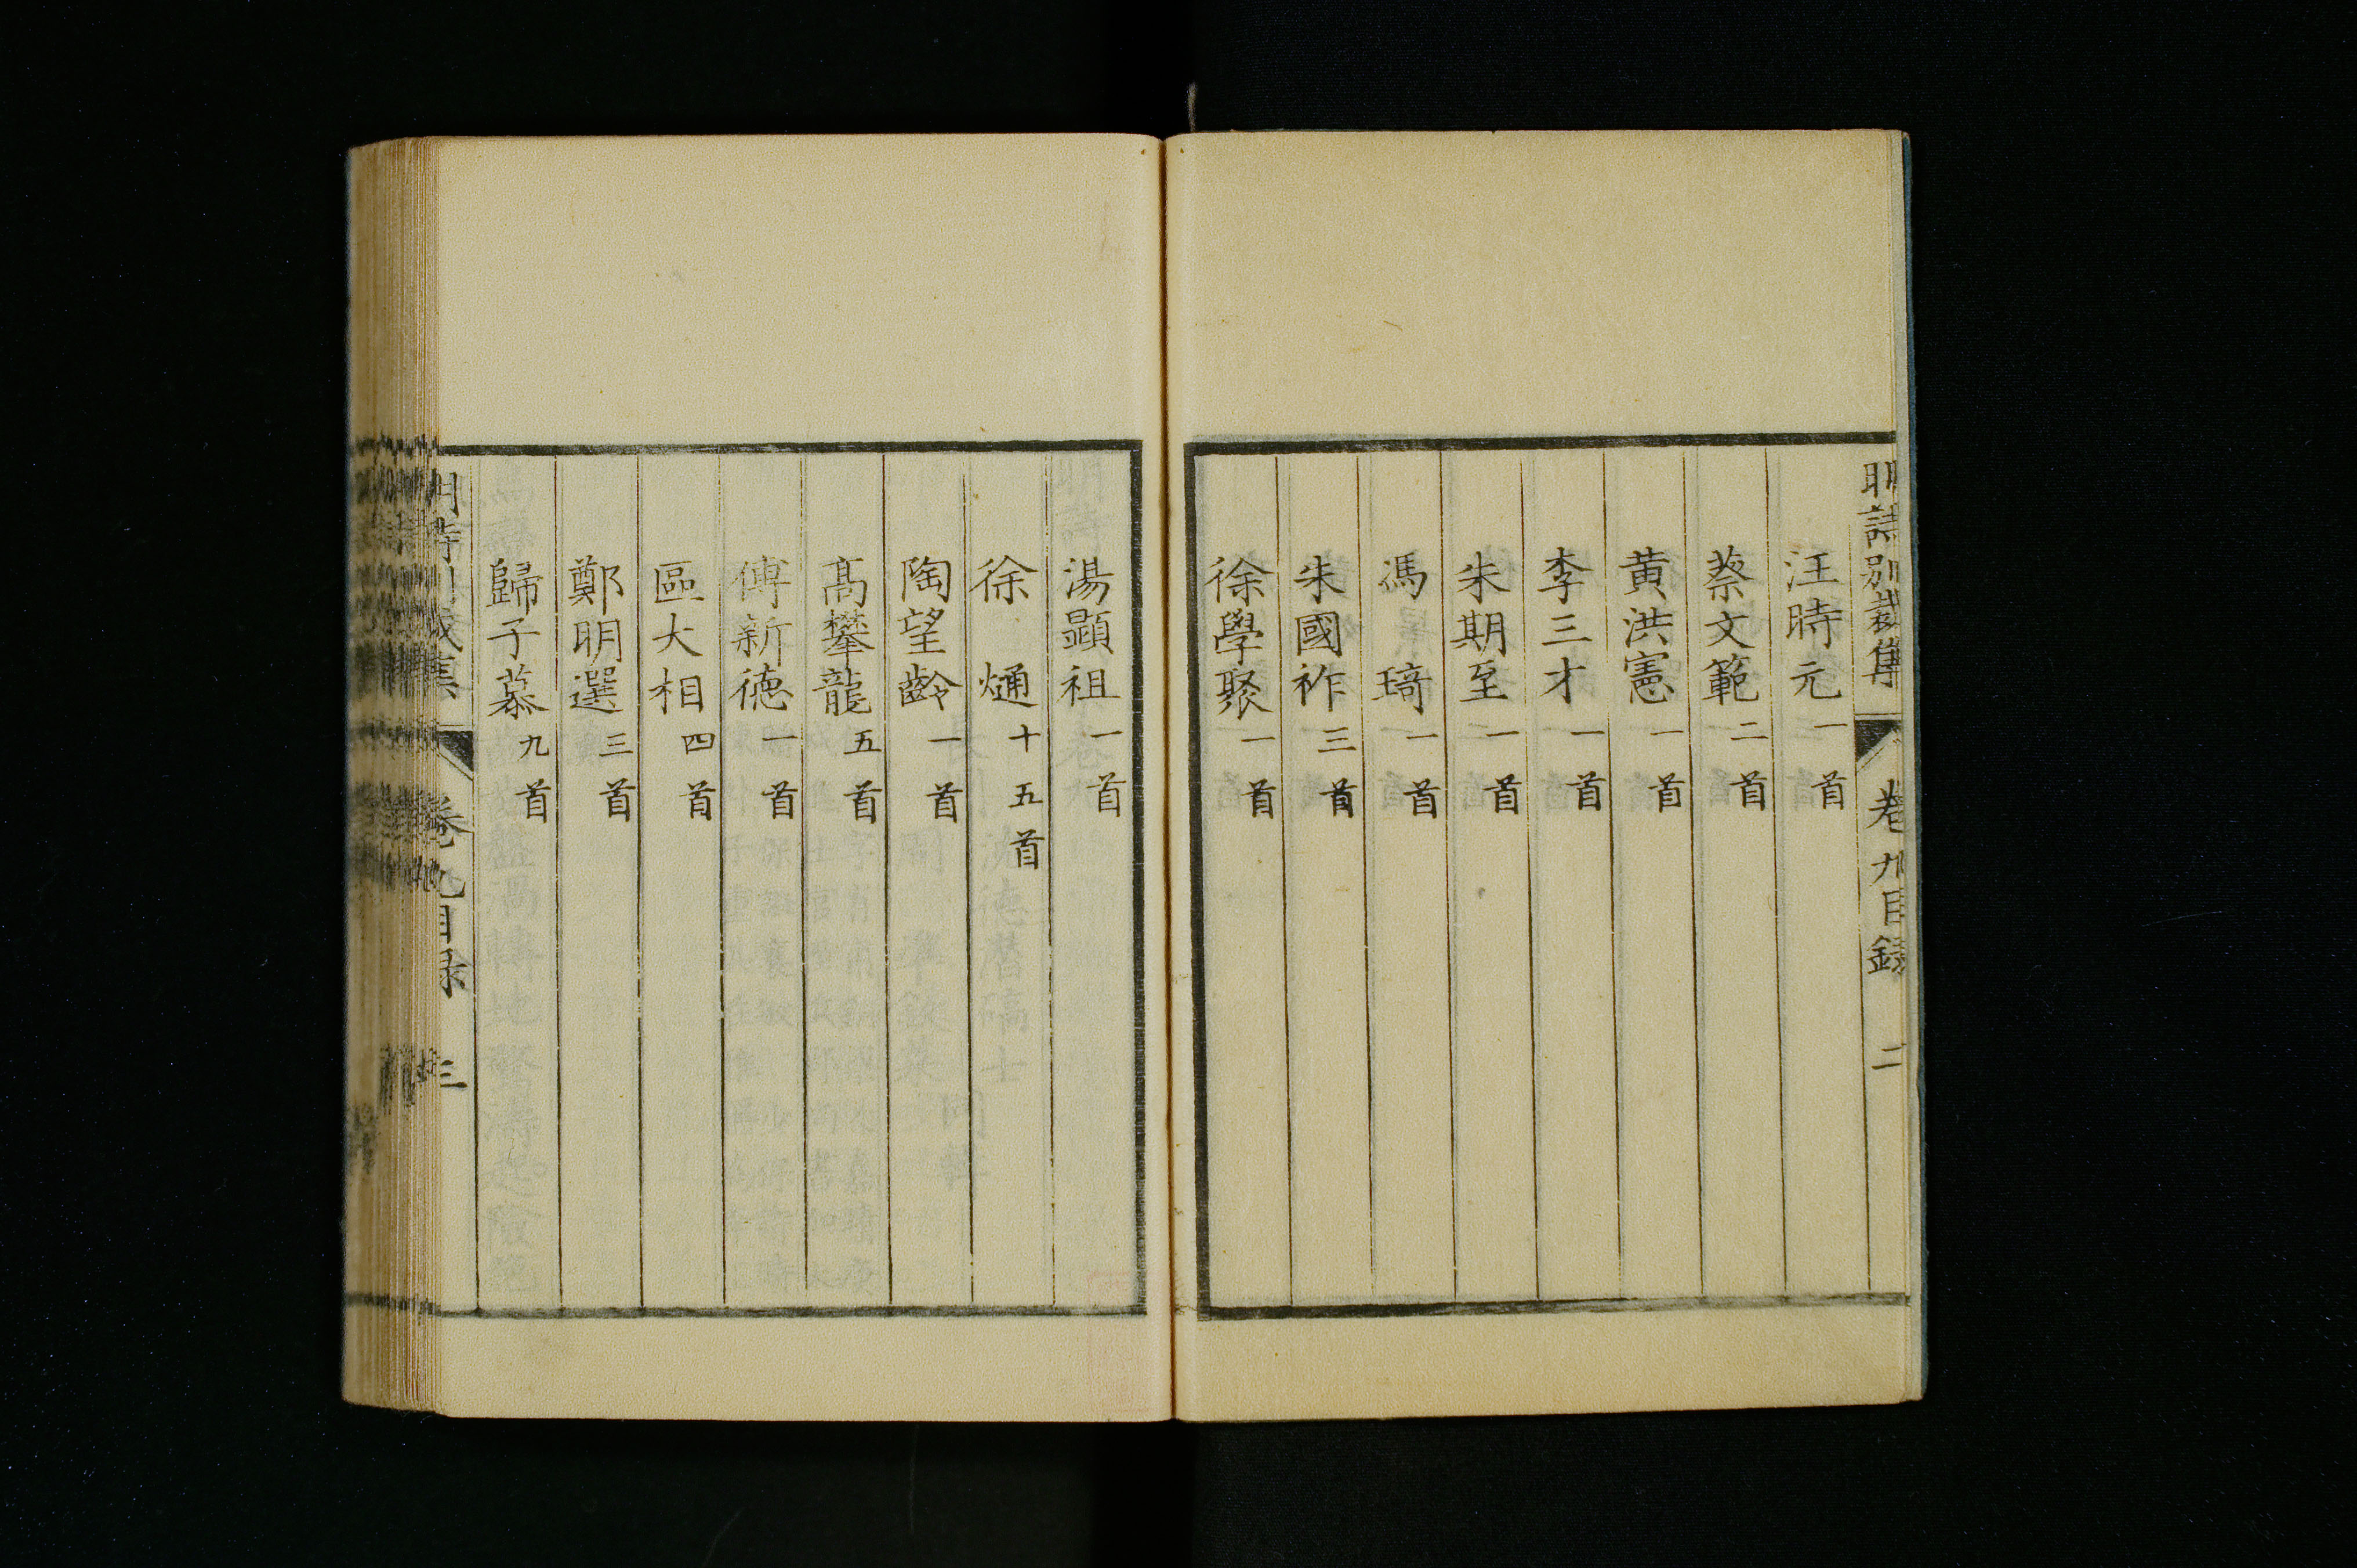 明詩別裁集 卷九目錄 二
汪時元一首
蔡文範二首
黃洪憲一首
李三才一首
朱期至一首
馮 琦一首
朱國祚三首
徐學聚一首
湯顯祖一首
徐 熥十五首
陶望齡一首
高攀龍五首
傅新德一首
區大相四首
鄭明選三首
歸子慕九首
卷九目錄 三